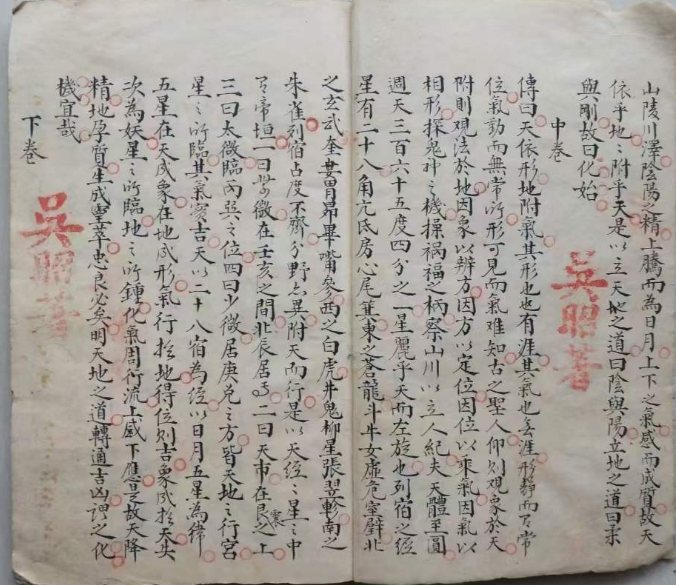 山陵川澤陰陽之精上騰而為日月上下之氣感而成質故天
依乎地之附乎天是以立天地之道曰陰與陽立地之道曰柔
與剛故曰化始
中卷
吳昭著
傳曰天依形地附氣其形也有涯其氣也無涯形靜而有常
位氣動而無常所形可見而氣難知古之聖人仰則觀象於天
附則觀法於地因象以辨方因方以定位因位以乘氣因氣以
相形探鬼神之機操禍福之柄察山川以立人紀夫天體至圓
週天三百六十五度四分之一星麗乎天而左旋也列宿之經
星有二十八角亢氐房心尾箕東之蒼龍斗牛女虛危室壁北
之玄武奎婁胃昴畢嘴參西之白虎井鬼柳星張翌軫南之
朱雀列宿占度不齊分野亦異附天而行是以天經之星之中
有帝垣一曰紫微在壬亥之間北辰居焉二曰天市在艮之上
三曰太微臨丙巽之位四曰少微居庚兌之方皆天地之行宮
星之所臨其氣實吉天以二十八宿為經以日月五星為緯
五星在天成象在地成形氣行於地得位則吉象成於天失
次為妖星之所臨地之所鍾化氣周行流上感下應是故天降
精地孕質生成靈草忠良必矣明天地之道轉通吉凶神之化
機宜哉
下卷
吳昭著